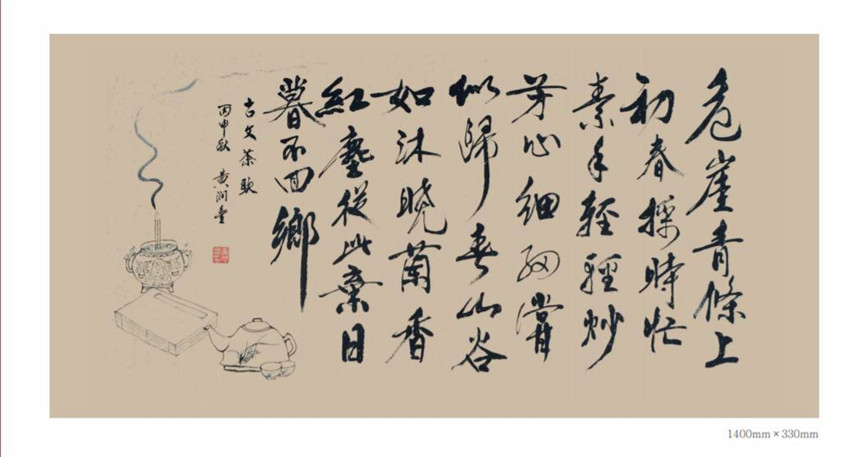 危崖青條上
初春採時忙
素手輕輕炒
芳心細細嘗
似歸春山谷
如沐曉蘭香
紅塵從此棄日
暮不回鄉
古文茶歌
丙申秋 黃潤[?]
1400mm×330mm